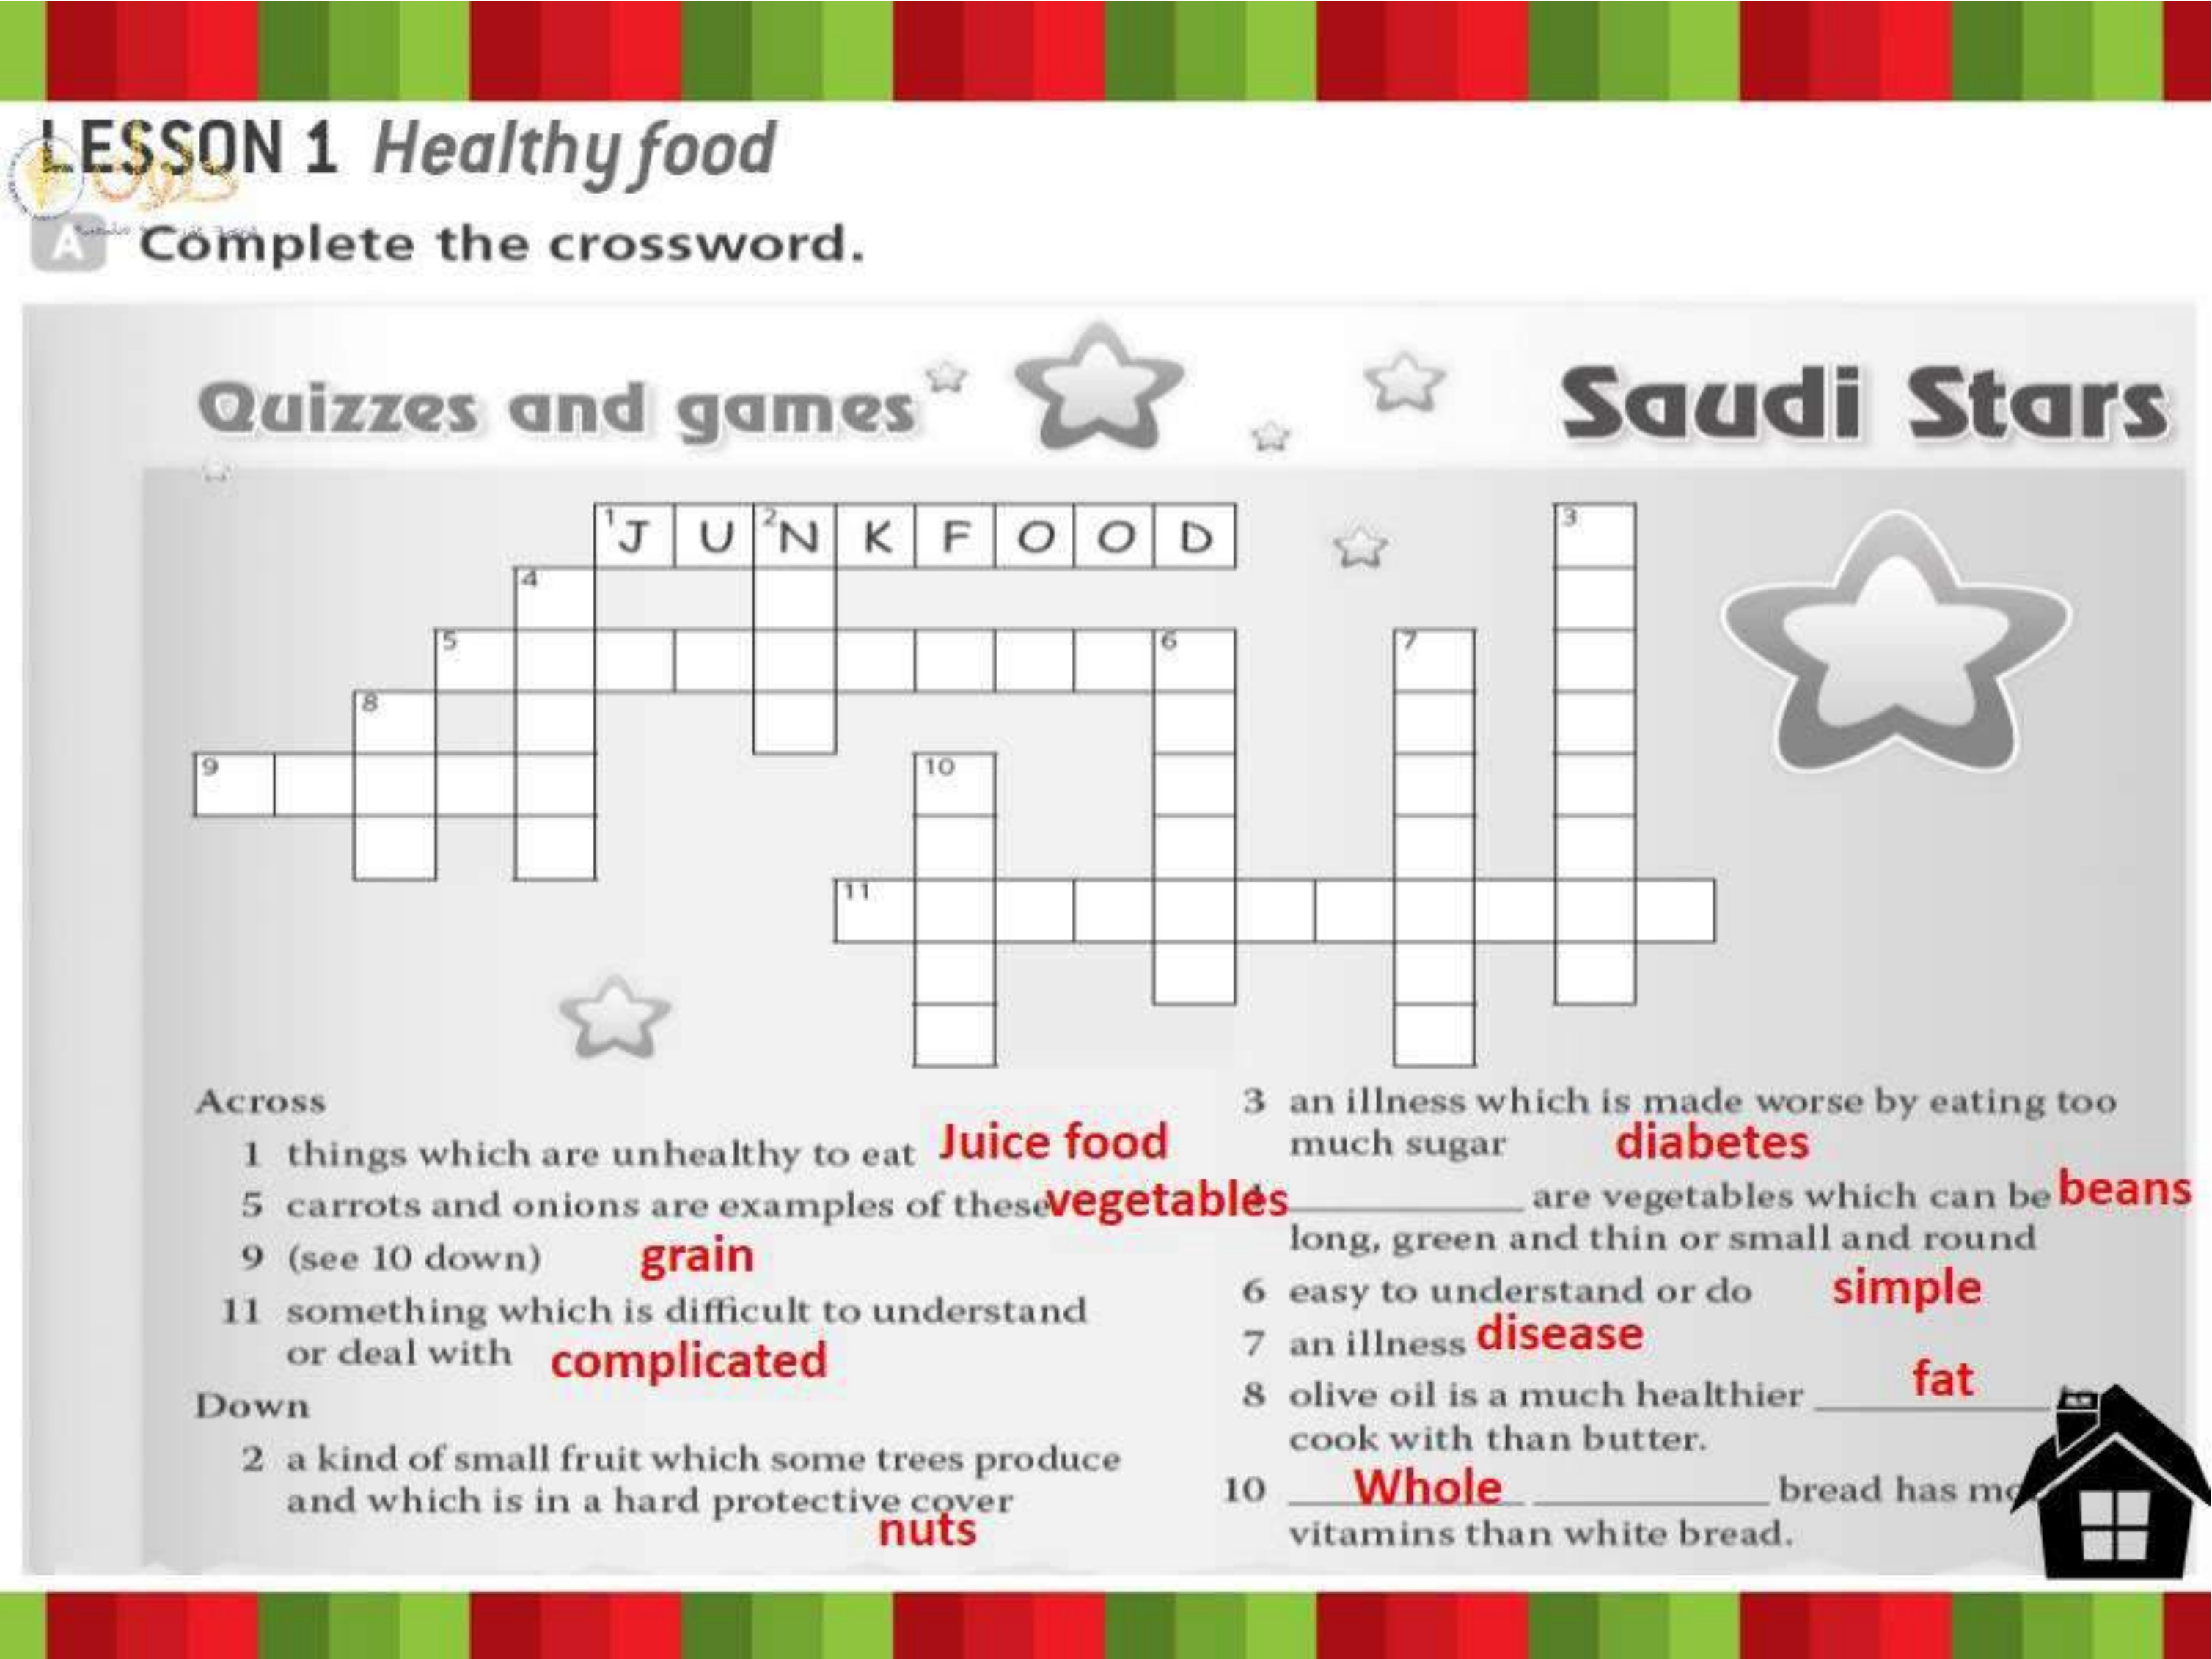 LESSON 1 Healthy food
A Complete the crossword.
Quizzes and games
Saudi Stars
1 J U 2 N K F O O D
3
4
5
6
7
8
9
10
11
Across
1 things which are unhealthy to eat Juice food
5 carrots and onions are examples of these vegetables
9 (see 10 down) grain
11 something which is difficult to understand
or deal with complicated
Down
2 a kind of small fruit which some trees produce
and which is in a hard protective cover
nuts
3 an illness which is made worse by eating too
much sugar diabetes
____________ are vegetables which can be beans
long, green and thin or small and round
6 easy to understand or do simple
7 an illness disease
8 olive oil is a much healthier ____________ fat
cook with than butter.
10 Whole ____________ bread has
vitamins than white bread.